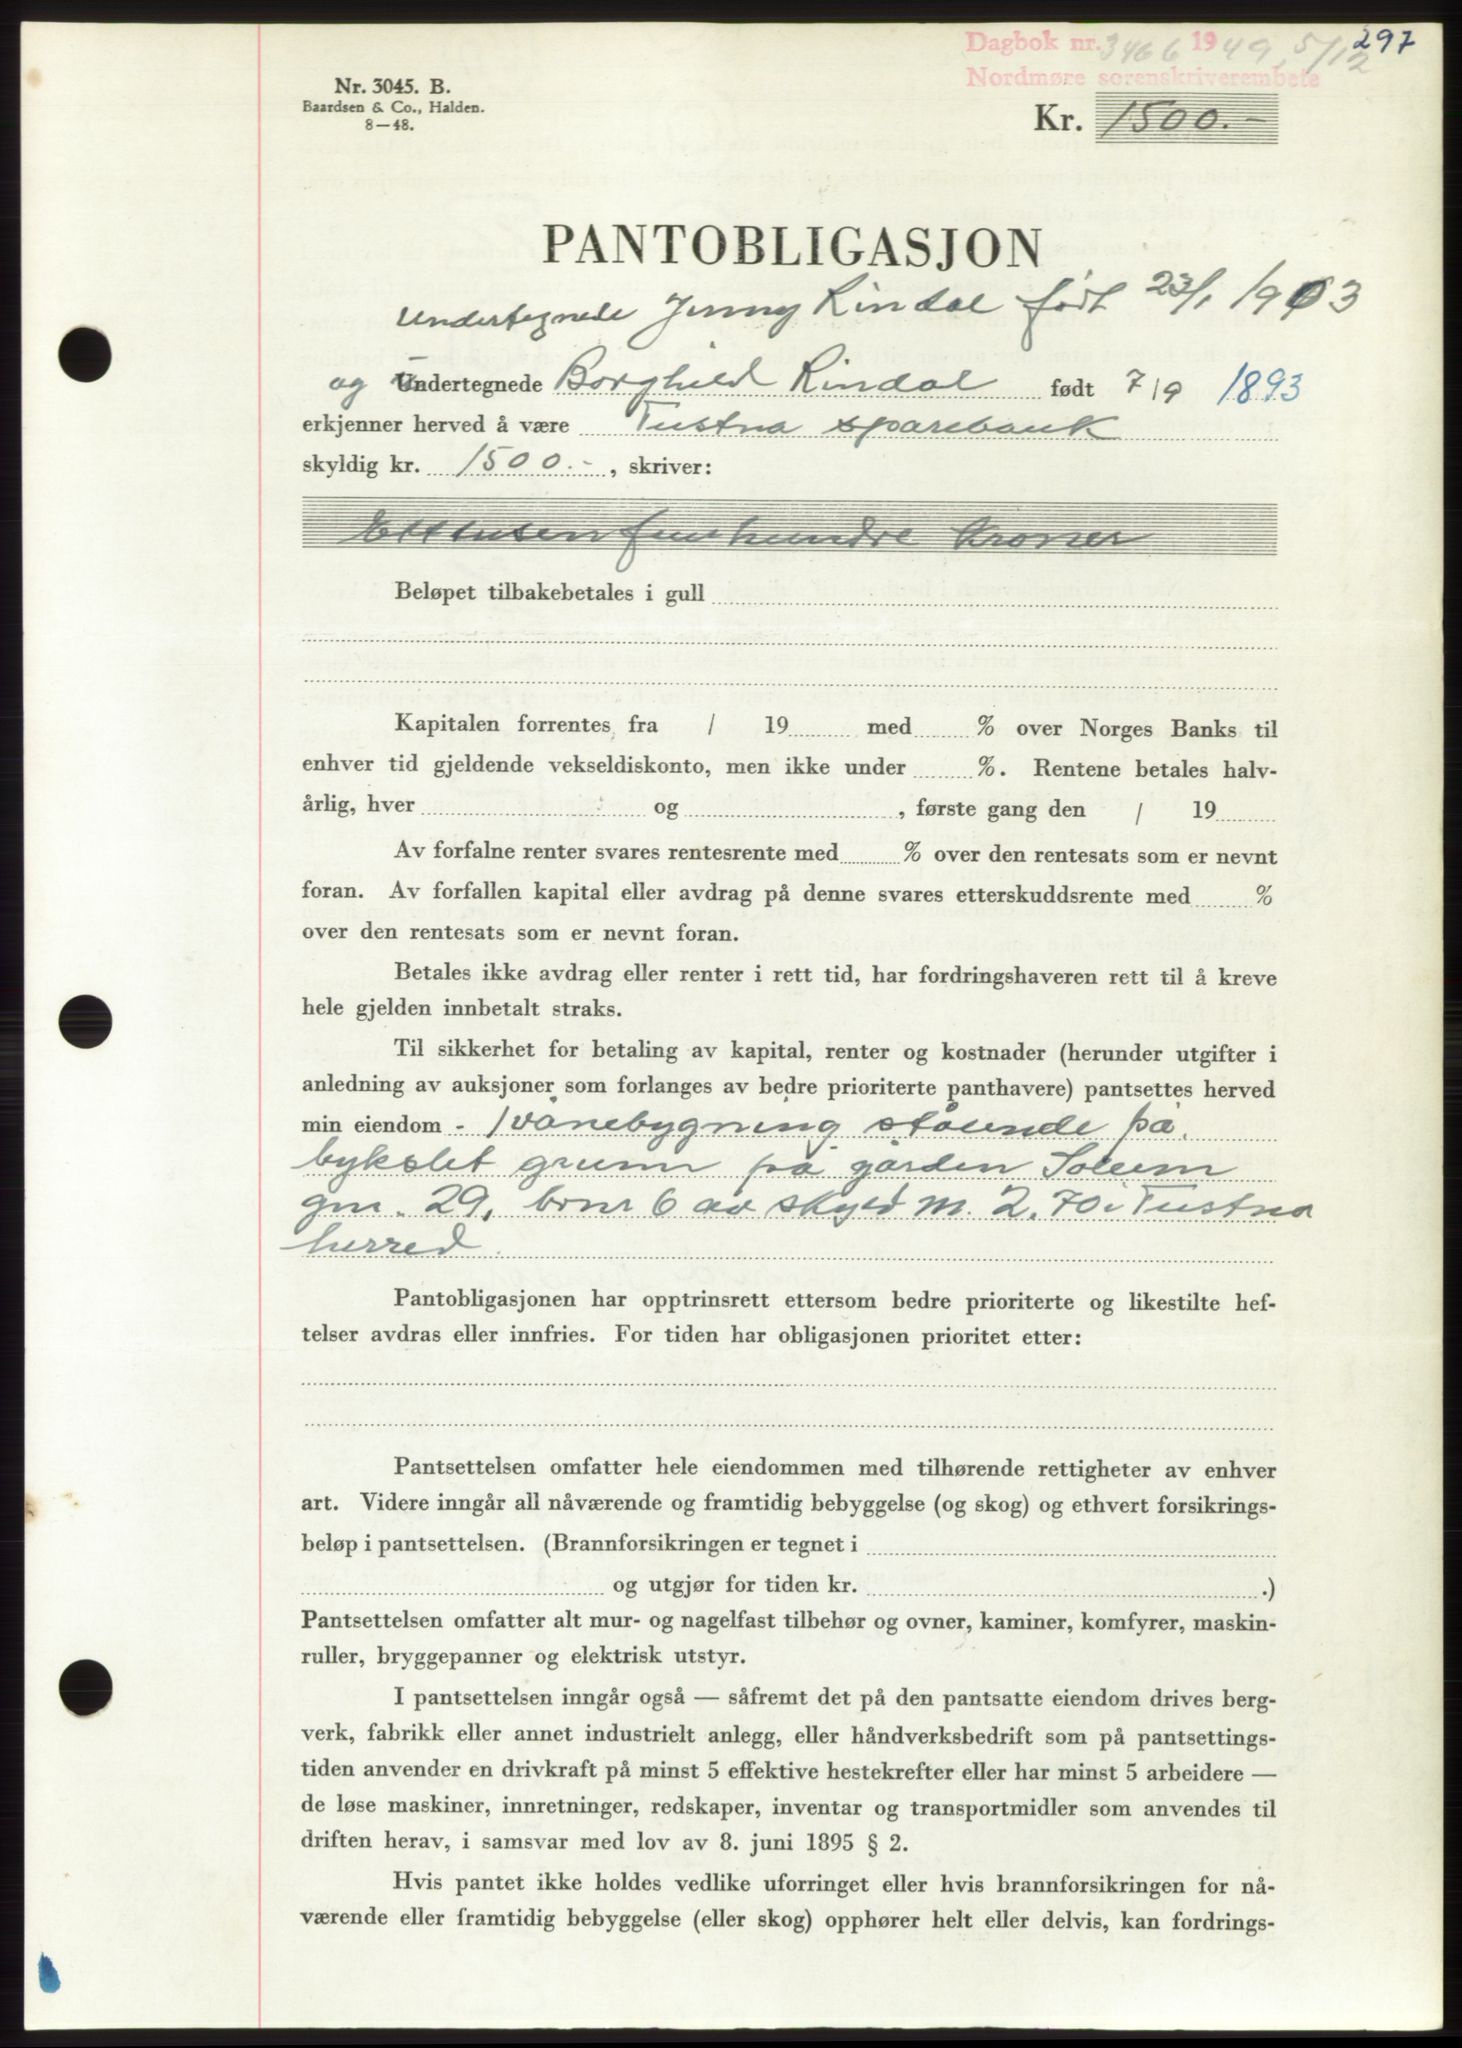 297
Dagbok nr. 3466 1949, 5/12
Nordmøre sorenskriverembete
Nr. 3045. B.
Baardsen & Co., Halden.
8—48.
Kr. 1500.-
PANTOBLIGASJON
Undertegnede Jenny Rindal født 23/1 1903
og Undertegnede Borghild Rindal født 7/9 1893
erkjenner herved å være Tustna sparebank
skyldig kr. 1500.-, skriver:
Ettusenfemhundre Kroner
Beløpet tilbakebetales i gull
Kapitalen forrentes fra / 19 med % over Norges Banks til
enhver tid gjeldende vekseldiskonto, men ikke under %. Rentene betales halv-
årlig, hver og , første gang den / 19
Av forfalne renter svares rentesrente med % over den rentesats som er nevnt
foran. Av forfallen kapital eller avdrag på denne svares etterskuddsrente med %
over den rentesats som er nevnt foran.
Betales ikke avdrag eller renter i rett tid, har fordringshaveren rett til å kreve
hele gjelden innbetalt straks.
Til sikkerhet for betaling av kapital, renter og kostnader (herunder utgifter i
anledning av auksjoner som forlanges av bedre prioriterte panthavere) pantsettes herved
min eiendom - 1 vånebygning stående på
bykslet grunn på gården Soleim
gnr. 29, brnr 6 av skyld m. 2.70 i Tustna
herred
Pantobligasjonen har opptrinsrett ettersom bedre prioriterte og likestilte hef-
telser avdras eller innfries. For tiden har obligasjonen prioritet etter:
Pantsettelsen omfatter hele eiendommen med tilhørende rettigheter av enhver
art. Videre inngår all nåværende og framtidig bebyggelse (og skog) og ethvert forsikrings-
beløp i pantsettelsen. (Brannforsikringen er tegnet i
og utgjør for tiden kr. .)
Pantsettelsen omfatter alt mur- og nagelfast tilbehør og ovner, kaminer, komfyrer, maskin-
ruller, bryggepanner og elektrisk utstyr.
I pantsettelsen inngår også — såfremt det på den pantsatte eiendom drives berg-
verk, fabrikk eller annet industrielt anlegg, eller håndverksbedrift som på pantsettings-
tiden anvender en drivkraft på minst 5 effektive hestekrefter eller har minst 5 arbeidere —
de løse maskiner, innretninger, redskaper, inventar og transportmidler som anvendes til
driften herav, i samsvar med lov av 8. juni 1895 § 2.
Hvis pantet ikke holdes vedlike uforringet eller hvis brannforsikringen for nå-
værende eller framtidig bebyggelse (eller skog) opphører helt eller delvis, kan fordrings-